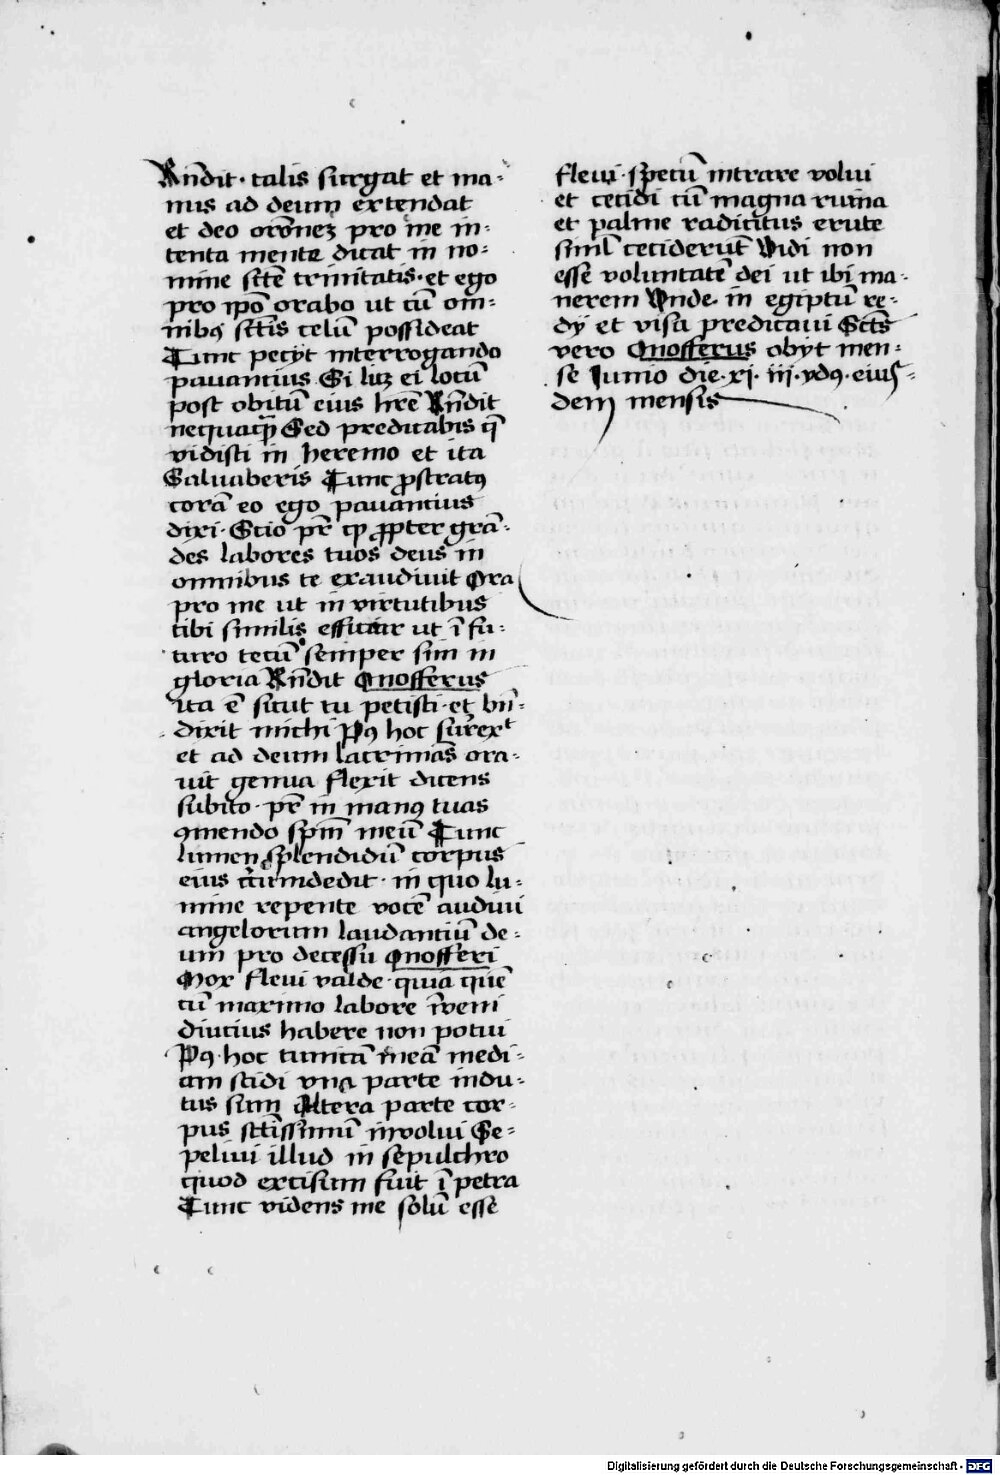 Rn̄dit · talis surgat et ma-
nus ad deum extendat
et deo orōnez pro me in-
tenta mente dicat in no-
mine sctē trinitatis · et ego
pro ip̄o orabo ut cū om-
nibꝯ sctīs celū possideat
Tunc petiit interrogando
pauantius Si lꝫ ei locū
post obitū eius hr̄e Rn̄dit
nequaq̄ Sed predicabis q̄
vidisti in heremo et ita
Saluaberis Tunc ꝓstratꝯ
corā eo ego pauantius
dixi · Scio pr̄ ꝙ ꝓpter grā-
des labores tuos deus in
omnibus te exaudiuit Ora
pro me ut in virtutibus
tibi similis efficiar ut ī fu-
turo tecū semper sim in
gloria Rn̄dit Onofferus
ita ē sicut tu petisti · et bn̄-
dixit michi Pꝯ hoc surrexᵗ
et ad deum lacrimās ora-
uit genua flexit dicens
subito · pr̄ in manꝯ tuas
ꝯmendo sp̄m meū Tunc
lumen splendidū corpus
eius cīrcumdedit · in quo lu-
mine repente vocē audiui
angelorum laudantiū de-
um pro decessu Onofferi
Mox fleui valde · quia quē
cū maximo labore īnueni
diutius habere non potui
Pꝯ · hoc tunicā meā medi-
am scidi vna parte indu-
tus sum Altera parte cor-
pus sctīssimū inuolui Se-
peliui illud in sepulchro
quod excisum fuit ī petra
Tunc videns me solū esse
fleui · specū intrare volui
et cecidi cū magna ruina
et palme radicitus erute
simĺ ceciderūt Vidi non
esse voluntatē dei ut ibi ma-
nerem Vnde in egiptū re-
dij et visa predicaui Sctūs
vero Onofferus obijt men-
se Iunio die · xi · iii · ydꝯ · eius-
dem mensis
Digitalisierung gefördert durch die Deutsche Forschungsgemeinschaft - DFG